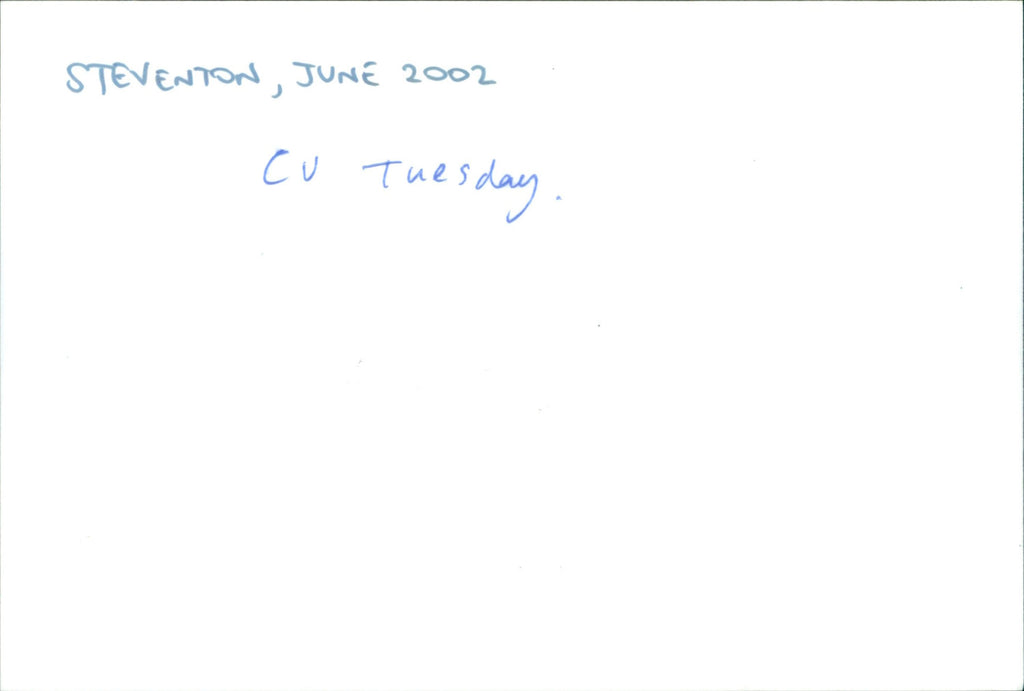 STEVENTON, JUNE 2002
CU Tuesday.